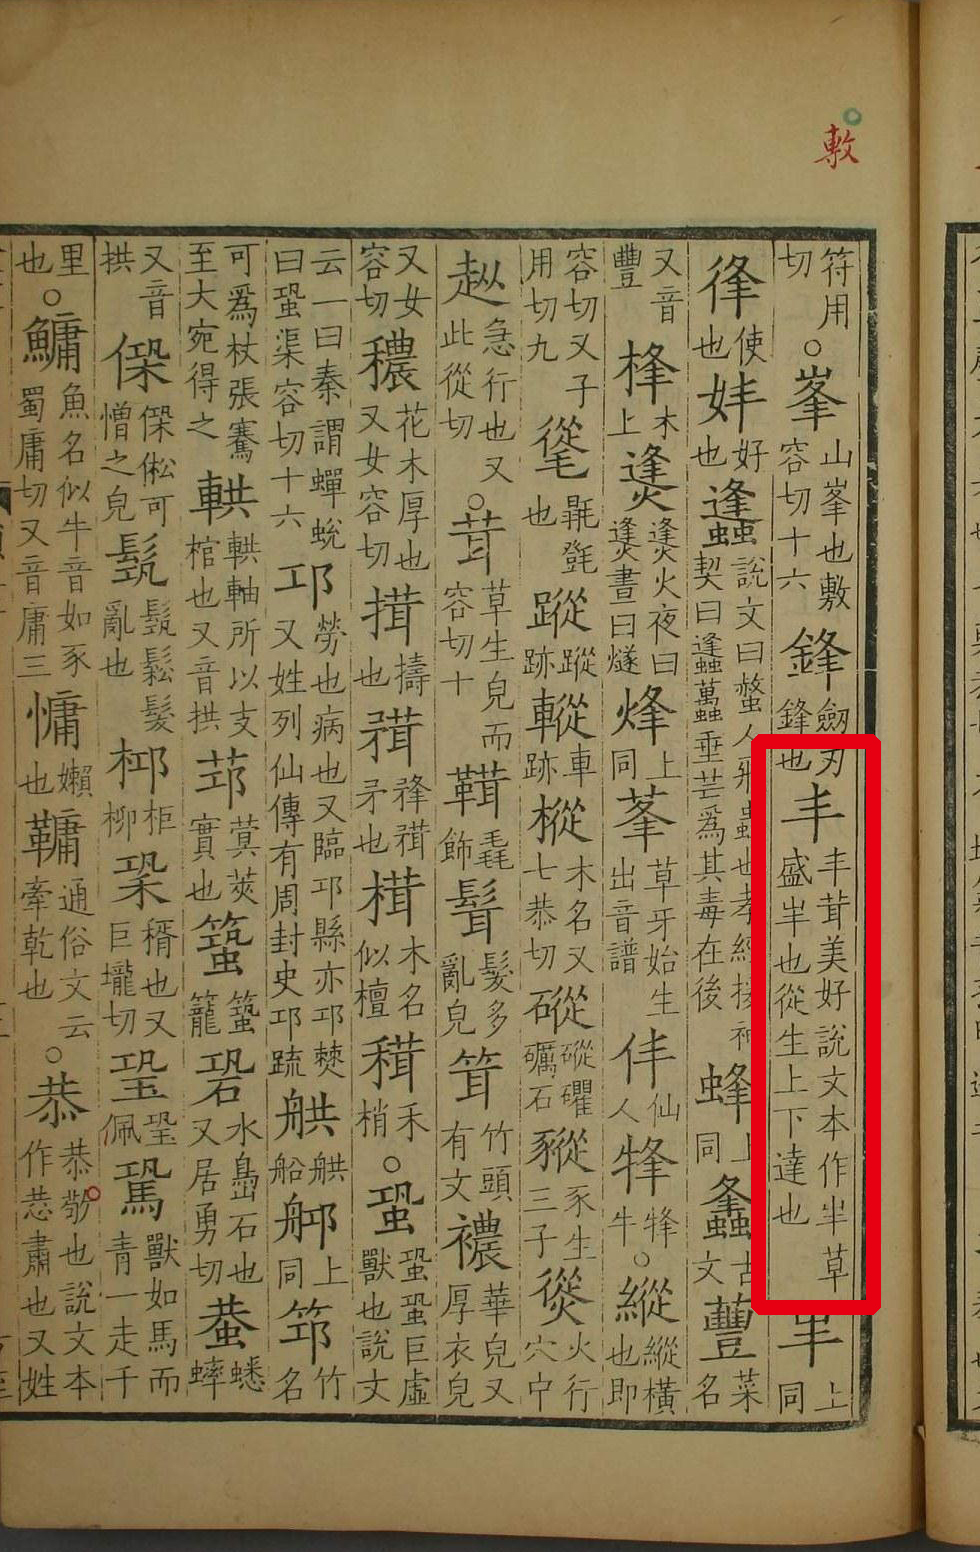 敷
符用切○峯山峯也敷容切十六鋒劒刃鋒也丰丰茸美好說文本作𡴀草盛𡴀也從生上下達也𡴀上同
㚅使也妦好也䗬說文曰螫人飛蟲也孝經援神契曰䗬蠆垂芒為其毒在後蜂上同古文蘴菜名
又音豐桻木上㷭㷭火夜曰㷭晝曰燧烽上同莑草牙始生出音譜仹仙人犎犎牛○縱縱橫也即
容切又子用切九㲪也蹤蹤跡䡮車跡樅木名又七恭切磫磫礭礪石豵豕生三子熧火行穴中
䟫急行也又此從切○茸草生皃而容切十毳飾髶髮多亂皃竹頭有文襛華皃又厚衣皃
又女容切穠花木厚也又女容切搑擣也矛也榵木名似檀禾稍○蛩蛩蛩巨虛獸也說文
云一曰秦謂蟬蛻曰蛩渠容切十六邛勞也病也又臨邛縣亦邛僰又姓列仙傳有周封史邛疏舼舼船上同筇竹名
可為杖張騫至大宛得之輁輁軸所以支棺也又音拱茚蓂莢實也籠水島石也又居勇切蛬蟋蟀
又音拱可憎之皃髮亂也桏柜柳䅃穁也又巨壠切佩獸如馬而青一走千
里也○鱅魚名似牛音如豕蜀庸切又音庸三慵嬾也通俗文云牽乾也○恭恭敬也說文本作㳟肅也又姓